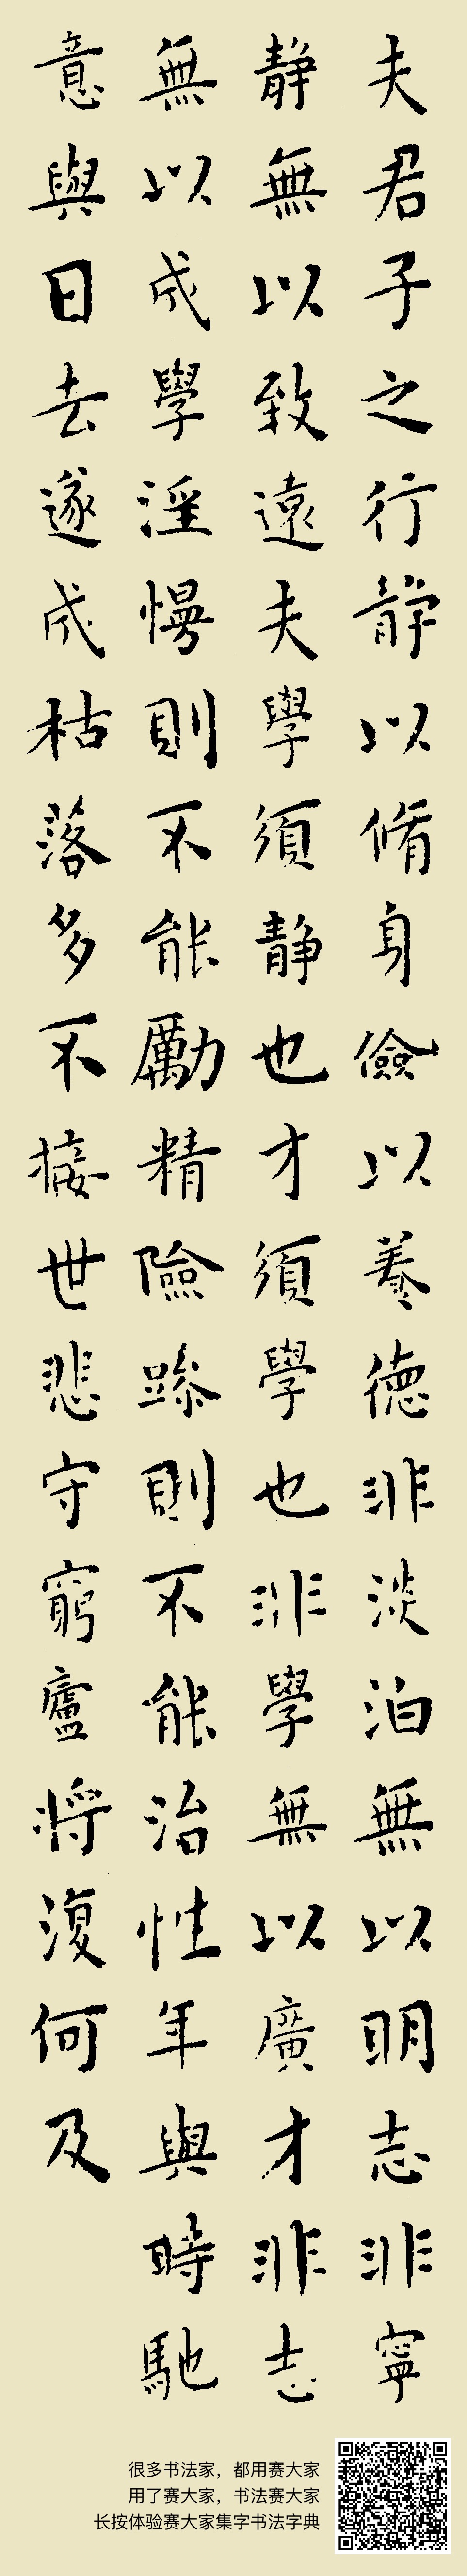 夫君子之行静以脩身儉以養德非淡泊無以明志非寧
静無以致遠夫學須静也才須學也非學無以廣才非志
無以成學淫慢則不能勵精險躁則不能治性年與時馳
意與日去遂成枯落多不接世悲守窮廬將復何及
很多书法家，都用赛大家
用了赛大家，书法赛大家
长按体验赛大家集字书法字典